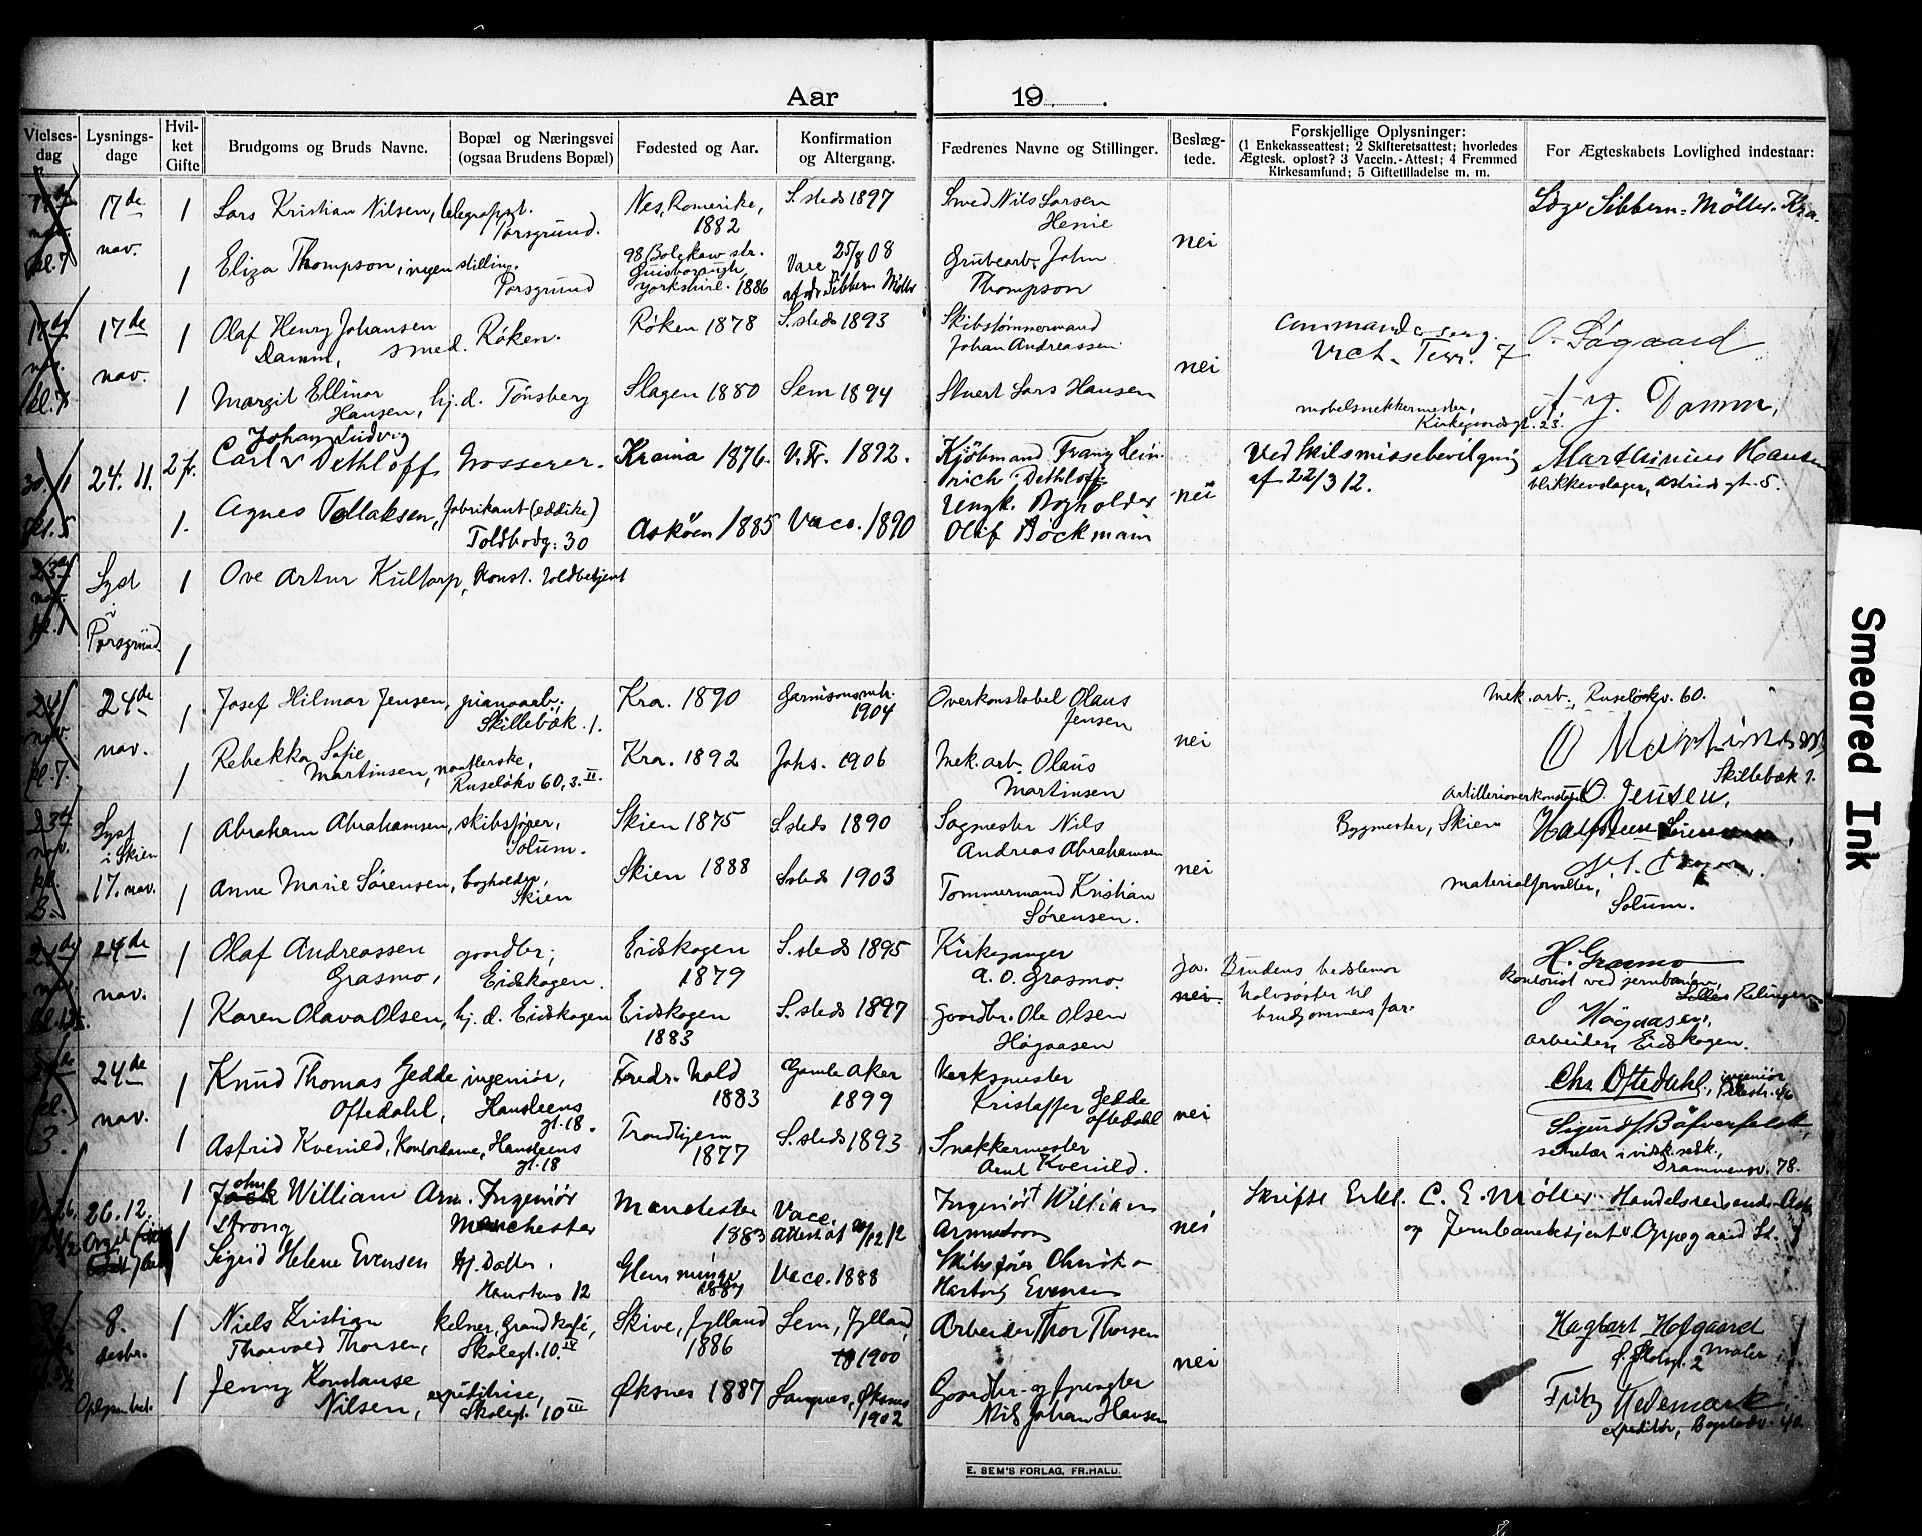 Aar 19 .
Vielses-dag
Lysnings-dage
Hvil-ket Gifte
Brudgoms og Bruds Navne.
Bopæl og Næringsvei (ogsaa Brudens Bopæl)
Fødested og Aar.
Konfirmation og Altergang.
Fædrenes Navne og Stillinger.
Beslæg-tede.
Forskjellige Oplysninger:
(1 Enkekasseattest; 2 Skifteretsattest; hvorledes
Ægtesk. opløst? 3 Vaccin.-Attest; 4 Fremmed
Kirkesamfund; 5 Giftetilladelse m. m.
For Ægteskabets Lovlighed indestaar:
17de nov. kl. 7
17de nov.
1
Lars Kristian Nilsen, telegrafist.
Porsgrund.
Nes, Romerike,
1882
S. steds 1897
Smed Nils Larsen
Henie
nei
Læge Sibbern-Möller. Kra.
1
Eliza Thompson, ingen stilling.
Porsgrund
98 Bolckow str.
Guisborough
Yorkshire. 1886
Vace 25/8 08
af dr. Sibbern Møller
Grubearb. John
Thompson
17de nov. kl. 7
17de nov.
1
Olaf Henry Johansen
Damm, smed. Røken.
Røken 1878
S. steds 1893
Skibstømmermand
Johan Andreassen
nei
O. Søgaard
1
Margit Ellinor
Hansen, hj. d. Tönsberg
Slagen 1880
Sem 1894
Stuert Lars Hansen
møbelsnekkermester,
Kirkegaardsgt. 23.
Damm,
30/11 kl. 5
24. 11.
2 fr.
Johan Ludvig
Carl v Dethloff
Grosserer.
Kraina 1876.
V. Fr. 1892.
Kjöbmand Franz Hein-
rich Dethloff
nei
Ved skilsmissebevilgning
af 22/3 12.
Marthinius Hansen
blikkenslager, Astrids gt. 5.
1.
Agnes Tollaksen, fabrikant (eddike)
Toldbodg. 30
Askøen 1885
Vacc. 1890
Ungk. Bogholder
Oluf Böckmann
23de nov. kl. 1
Lyst
i
Porsgrund.
1
Ove Artur Kultorp, konst. toldbetjent
1
24/ nov. kl. 7.
24de nov.
1
Josef Hilmar Jensen, pianoarb.;
Skillebæk. 1.
Kra. 1890
Garnisonsmh.
1904
Overkonstabel Olaus
Jensen
nei
Mek. arb., Ruseløkv. 60.
O Martinsen
1
Rebekka Sofie
Martinsen, naatlerske,
Ruseløkv 60, 3. II.
Kra. 1892
Johs. 1906
Mek. arb. Olaus
Martinsen
Skillebæk 1.
Artillerioverkonstabel O. Jensen,
23de nov. kl.
Lyst
i Skien
17. nov.
1
Abraham Abrahamsen, skibsfører,
Solum.
Skien 1875
S. steds 1890
Sagmester Nils
Andreas Abrahamsen
nei
Bygmester, Skien
1
Anne Marie Sørensen, bogholder,
Skien
Skien 1888
S. steds 1903
Tømmermand Kristian
Sørensen.
Materialforvalter,
Solum.
24de nov.
24de nov.
1
Olaf Andreassen
Grasmo,
gaardbr;
Eidskogen.
Eidskogen
1879
S. steds 1895
Kirkesanger
A. O. Grasmo.
ja.
nei.
Brudens bedstemor
halvsøster til
brudgommens far.
H. Grasmo
Kontorist ved jernbanen,
1
Karen Olava Olsen, hj. d. Eidskogen
Eidskogen
1883
S. steds 1897
Gaardbr. Ole Olsen
Högaasen
O Högaasen,
arbeider, Eidskogen.
kl. 3.
24de nov.
1
Knud Thomas Gedde
Oftedahl,
ingeniør,
Hansteens
gt. 18.
Fredr. vold
1883
Gamle Aker
1899
Verksmester
Kristoffer Gedde
Oftedahl
nei
Chr. Oftedahl, ingeniør
1
Astrid Kvenild, Kontordame, Hansteens
gt. 18
Trondhjem
1877
S. steds 1893
Snekkermester
Arnt Kvenild.
Sigurd Böfverfeldt,
Drammensv. 78.
26. 12.
1
John
Jack William Arm-
strong
Ingeniör
Manchester
Manchester
1883
Vacc.
Attest af 20/12 12
Ingeniör William
Armstrong
nei
Skriftl Erkl. C. E. Møller Handelsreisende
og Jernbanebetjent Oppegaard St.
1
Sigrid Helene Evensen
Hj. Datter.
Glemminge
Vacc. 1888
Skibsfører
Evensen
8. desbr.
1
Niels Kristian
Thorvald Thorsen,
kelner, Grand Kafé,
Skolegt. 10. IV
Skive, Jylland
1886
Sem, Jylland,
1900
Arbeider Thor Thorsen
nei
Hagbart Hofgaard
maler
1
Jenny Konstanse
Nilsen,
expeditrise,
Skolegt. 10 III
Øksnes 1887
Langnes, Øksnes
1902
Gaardbr.
Nils Johan Hansen
Fritz Hedemark,
expeditør, Bogstadv. 40
E. SEM'S FORLAG, FR.HALD.
Smeared Ink